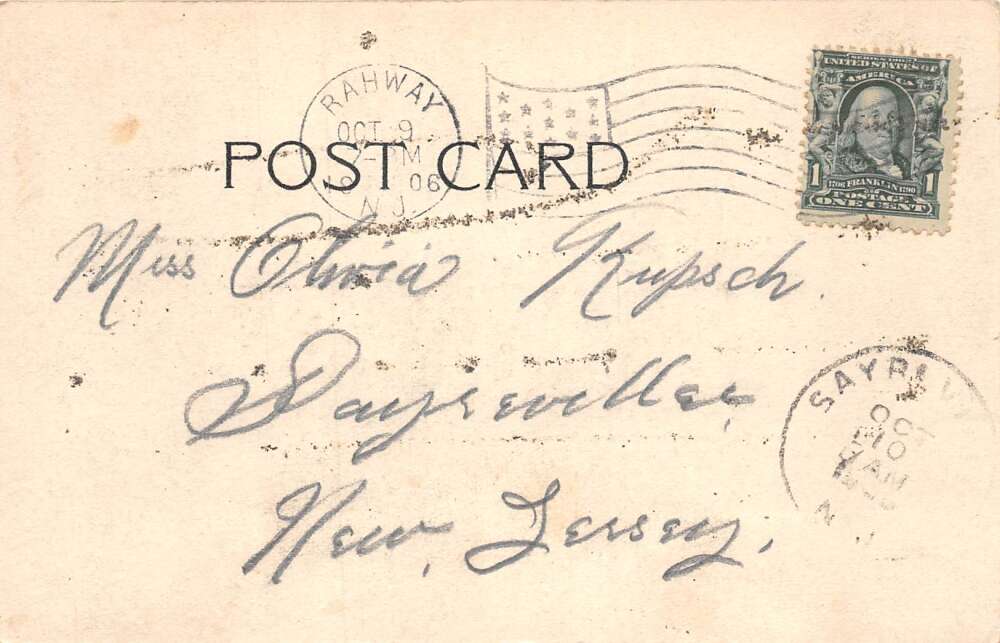 RAHWAY
OCT 9
PM
06
N.J.
POST CARD
SERIES 1902
UNITED STATES OF
AMERICA
1 1706 FRANKLIN 1790 1
POSTAGE
ONE CENT
Miss Olivia Kupsch.
Sayreville,
New Jersey,
OCT
10
AM
N J